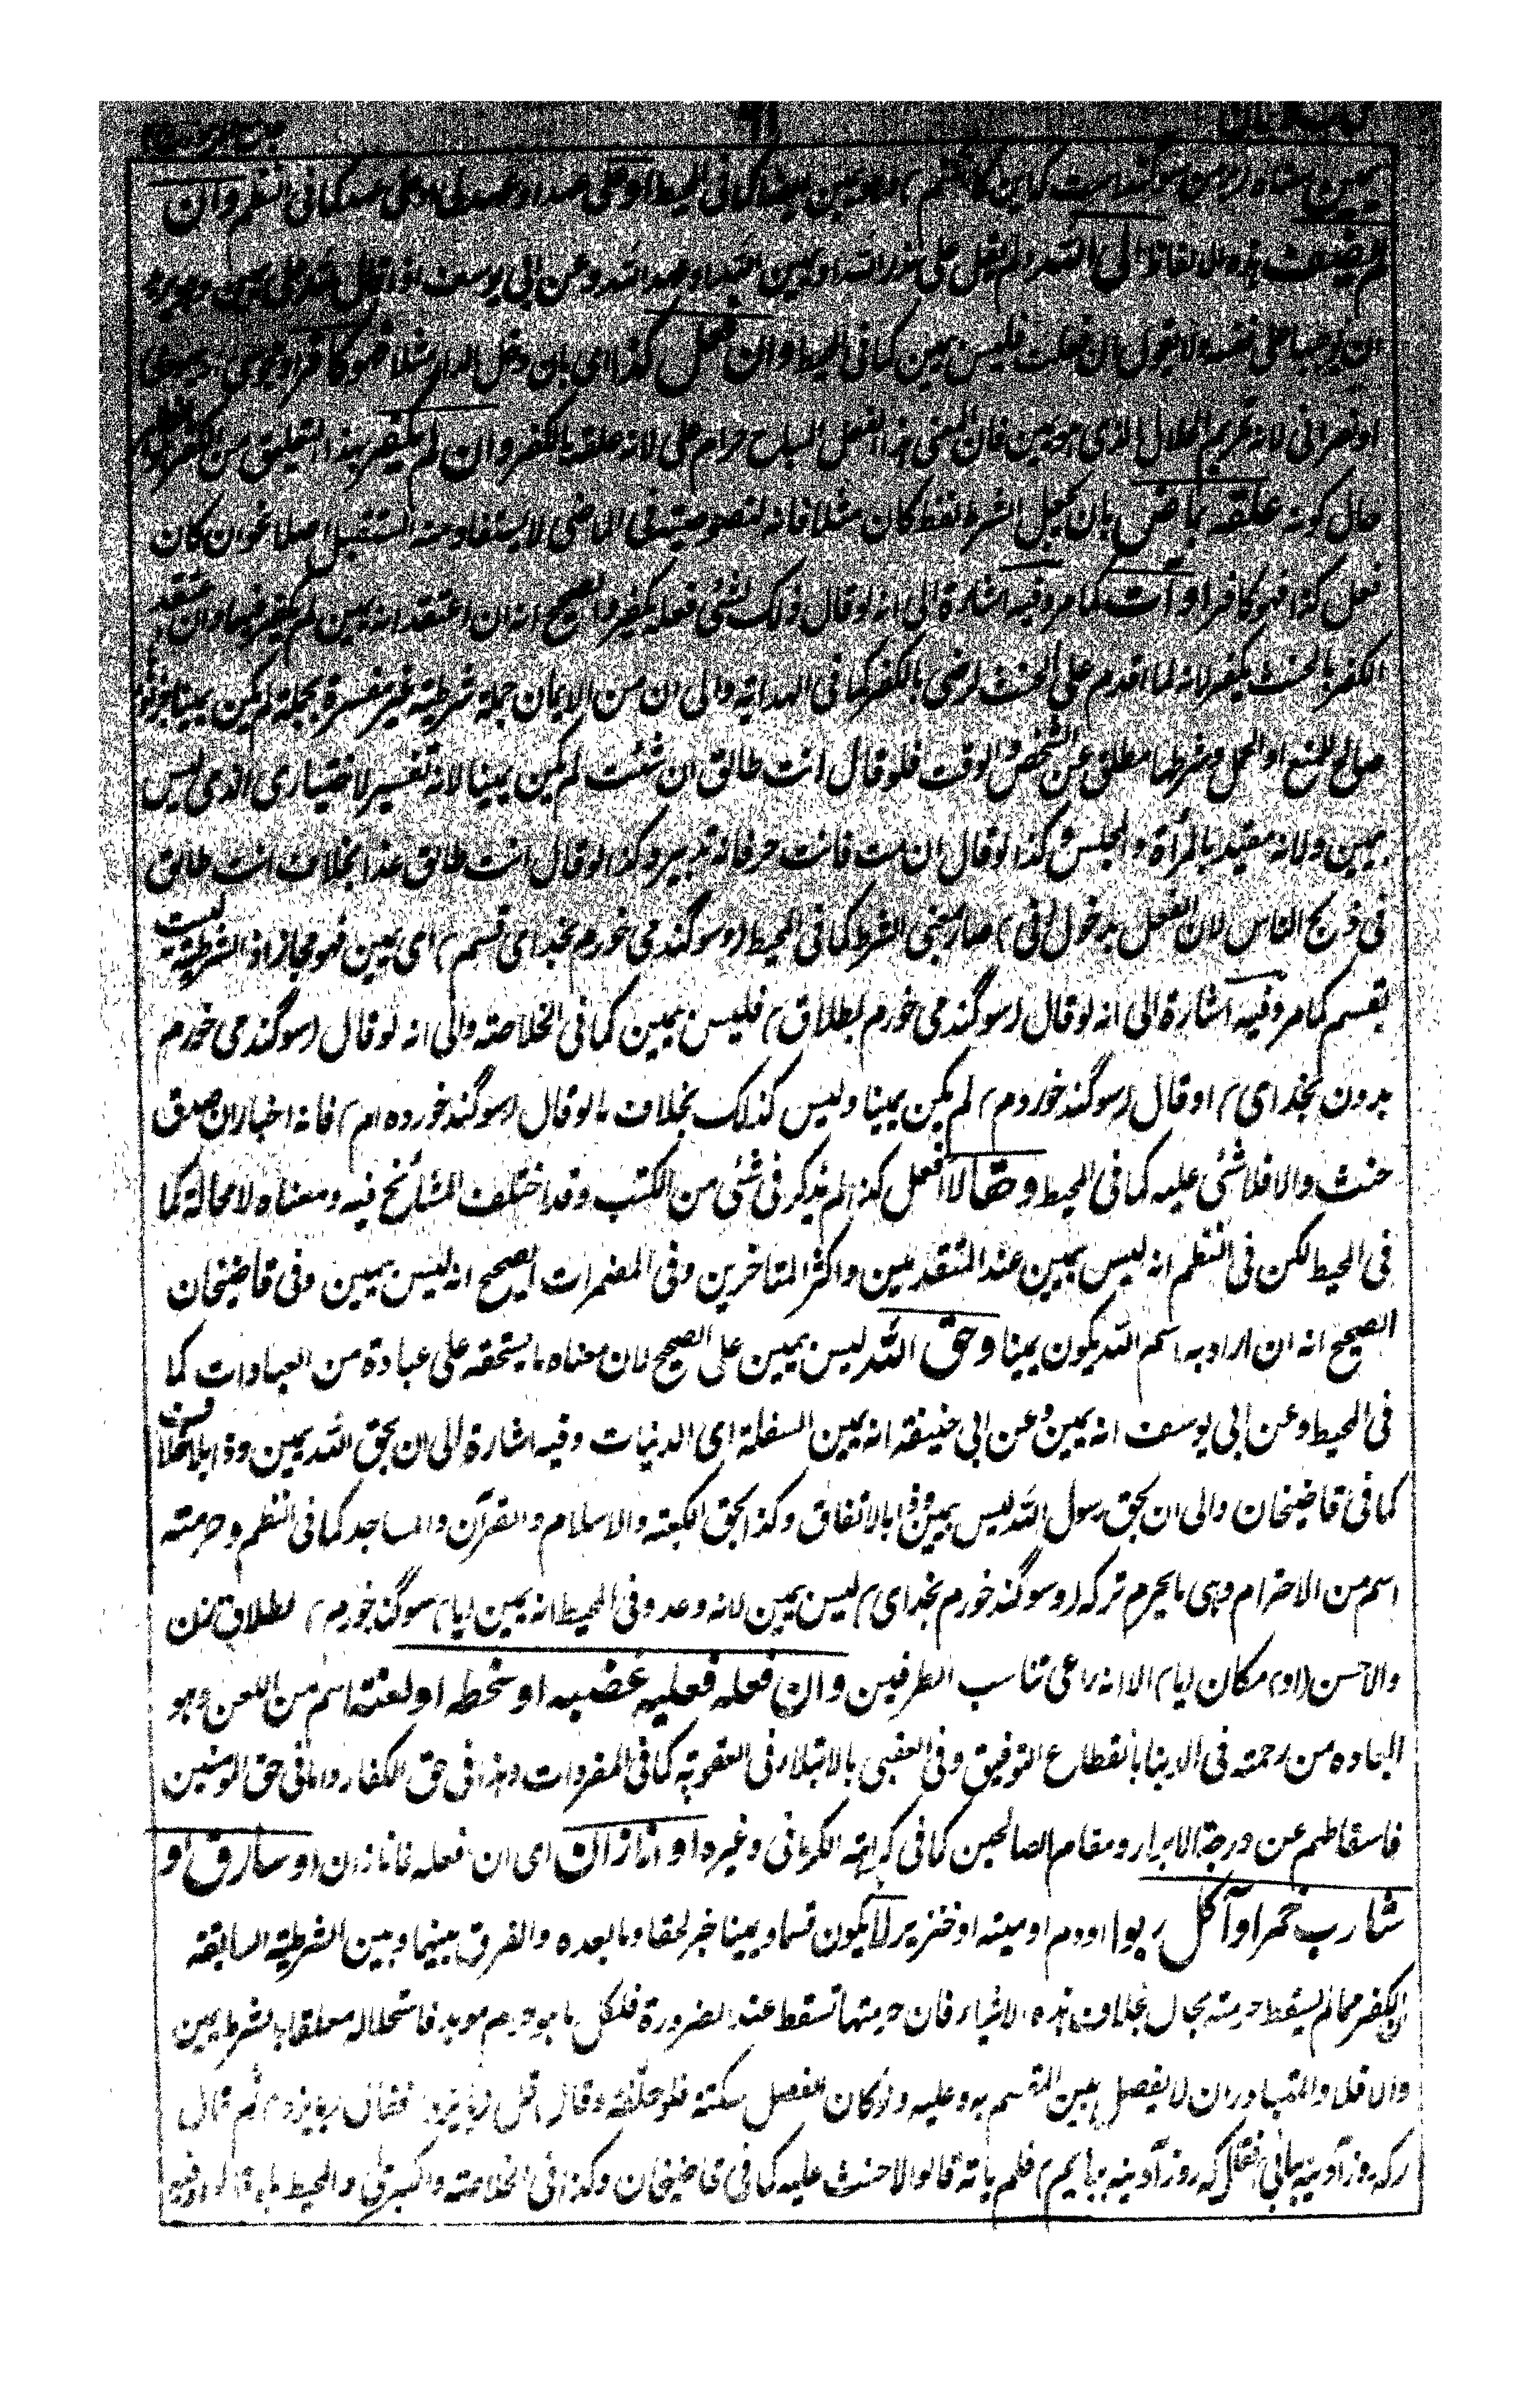 كتاب الايمان ٩١
يمين و معناه (من سوگندست كه اين كار كنم) و هو يمين ايضا كما فى المحيط او على عهد كما فى النظم وان
لم يضف هذه الالفاظ الى الله ولم يقل على نذر الله او يمين الله او عهد الله وعن ابى يوسف لو قال لله على يمين
ان يوجبها على نفسه ولا يقول ان فعلت فليس بيمين كما فى المحيط وان فعل كذا اى بان دخل الدار مثلا فهو كافر او يهودى
او نصرانى لانه تحريم الحلال الذى هو يمين فان المعنى هذا الفعل المباح حرام على لانه علقه بالكفر وان لم يكفر بهذا التعليق من الكفر
حال كونه علقه بماض بان يجعل الشرط لفظ كان مثلا فانه لخصوصيته فى الماضى لا يستفاد منه المستقبل اصلا نحو ان كان
فعل كذا فهو كافر او آت كما مر وفيه اشارة الى انه لو قال ذلك لشئ فعله يكفر والصحيح انه ان اعتقد انه يمين لم يكفر فيهما وان اعتقد
الكفر بالحنث يكفر لانه لما اقدم على الحنث رضى بالكفر كما فى الهداية والى ان من الايمان جملة شرطية غير مفسرة بجملة لم يكن يمينا
صالح للمنع او الحمل وشرطها مطلق عن الشخص والوقت فلو قال انت طالق ان شئت لم يكن يمينا لانه تفسير لاختيارى الذى ليس
بيمين ولانه مقيد بالمرأة والمجلس وكذا لو قال ان مت فانت حر فانه تدبير وكذا لو قال انت طالق غدا بخلاف انت طالق
فى ذبح الناس لان الفعل بدخول (فى) صار بمعنى الشرط كما فى المحيط (وسوگند مى خورم بخداى قسم) اى يمين فهو مجاز اذ الشرطية ليست
بقسم كما مر وفيه اشارة الى انه لو قال (سوگند مى خورم بطلاق) فليس بيمين كما فى الخلاصة والى انه لو قال (سوگند مى خورم
بدون بخداى) او قال (سوگند خوردم) لم يكن يمينا وليس كذلك بخلاف ما لو قال (سوگند خورده ام) فانه اخبار ان صدق
حنث والا فلا شئ عليه كما فى المحيط وحقا لا افعل كذا لم يذكر فى شئ من الكتب وقد اختلف المشائخ فيه ومعناه لا محالة كما
فى المحيط لكن فى النظم انه ليس بيمين عند المتقدمين واكثر المتاخرين وفى المضمرات الصحيح انه ليس بيمين وفى قاضيخان
الصحيح انه ان اراد به اسم الله يكون يمينا وحق الله ليس بيمين على الصحيح لان معناه ما يستحقه على عبادة من العبادات كما
فى المحيط وعن ابى يوسف انه يمين وعن ابى حنيفة انه يمين السفلة اى الدنيات وفيه اشارة الى ان بحق الله يمين وذا بلا خلاف
كما فى قاضيخان والى ان بحق رسول الله ليس بيمين وذا بالاتفاق وكذا بحق الكعبة والاسلام والقرآن والمساجد كما فى النظم وحرمته
اسم من الاحترام وهى ما يحرم تركه (وسوگند خورم بخداى) ليس بيمين لانه وعد وفى المحيط انه يمين (يا) سوگند خورم) بطلاق زن
والاحسن (او) مكان (يا) الا انه راعى تناسب الطرفين وان فعله فعليه غضبه او سخطه او لعنته اسم من اللعن وهو
ابعاده من رحمته فى الدنيا بانقطاع التوفيق وفى العقبى بالابتلاء فى العقوبة كما فى المفردات وهذا فى حق الكفار واما فى حق المومنين
فاسقاطهم عن درجة الابرار ومقام الصالحين كما فى كراهة الكرمانى وغيره او انا زان اى ان فعله فانا زان او سارق او
شارب خمر او آكل ربوا او دم او ميتة او خنزير لا يكون قسما ويمينا خبر لحقا وما بعده والفرق بينهما وبين الشرطية السابقة
ان الكفر مما لم يسقط حرمته بحال بخلاف هذه الاشياء فان حرمتها تسقط عند الضرورة فلكل ما هو حرم موبد فاستحلاله معلقا بالشرط يمين
والا فلا والمتبادر ان لا يفصل بين المقسم به وعليه ولو كان الفصل سكتة فلو حلفه وقال قل فقال ثم قال
(كه روز آدينه بيائى) فقال (كه روز آدينه بيايم) فلم ياته قالوا لا حنث عليه كما فى قاضيخان وكذا فى الخلاصة والكبرى والمحيط